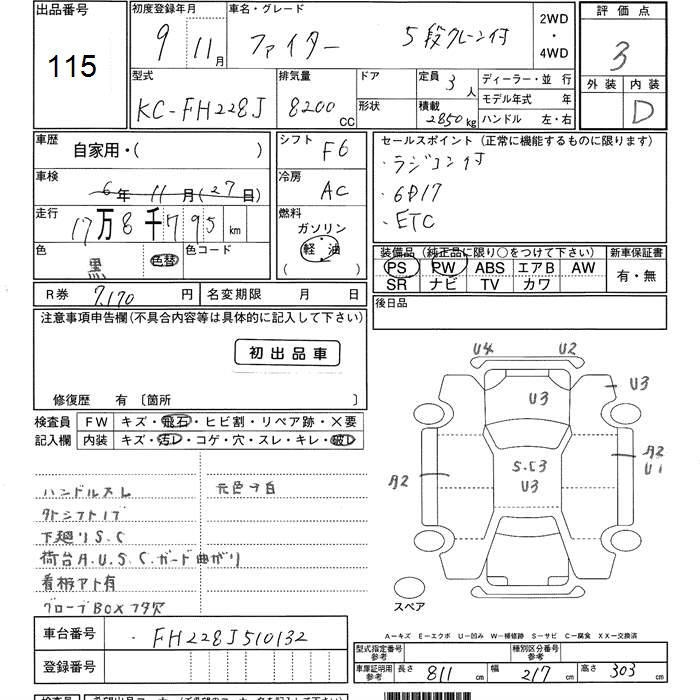 出品番号 115
初度登録年月 9年 11月
車名・グレード ファイター 5段クレーン付
2WD ・ 4WD
評価点 3
外装 内装 D
型式 KC-FH228J
排気量 8200 CC
ドア 形状
定員 3人
積載 2850kg
ディーラー・並行
モデル年式 年
ハンドル 左・右
車歴 自家用・( )
シフト F6
車検 6年 11月(27日)
冷房 AC
走行 17万8千795km
燃料 ガソリン 軽油 ( )
色 黒 色替
色コード
R券 7,170円
名変期限 月 日
セールスポイント(正常に機能するものに限ります)
・ラジコン付
・6D17
・ETC
装備品(純正品に限り○をつけて下さい)
PS PW ABS エアB AW
SR ナビ TV カワ
新車保証書
有・無
後日品
注意事項申告欄(不具合内容等は具体的に記入して下さい)
初出品車
修復歴 有〔箇所 〕
検査員記入欄
FW キズ・飛石・ヒビ割・リペア跡・×要
内装 キズ・汚レ・コゲ・穴・スレ・キレ・破レ
ハンドルスレ 元色ヲ白
下廻りS.C
荷台A.U.S.C.ガード曲がり
看板アト有
グローブBOXフタ穴
U4 U2
U3 U3
A2 S.C3 A2
U3 U1
スペア
A-キズ E-エクボ U-凹み W-補修跡 S-サビ C-腐食 XX-交換済
車台番号 FH228J510132
登録番号
型式指定番号 参考
種別区分番号 参考
車庫証明用 参考 長さ 811cm 幅 217cm 高さ 303cm